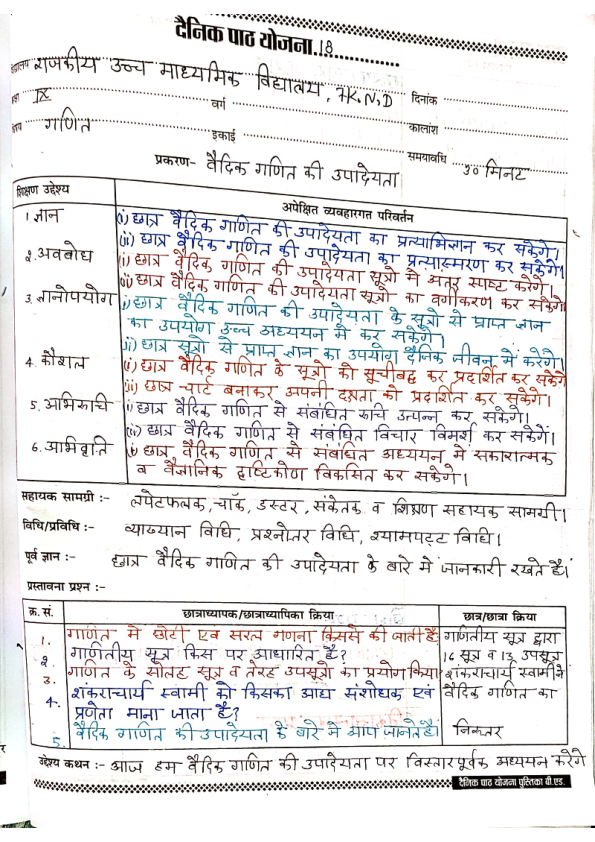 दैनिक पाठ योजना..18..............
विद्यालय राजकीय उच्च माध्यमिक विद्यालय, 7K.N.D दिनांक
IX वर्ग कालांश
गणित इकाई समयावधि 30 मिनट
प्रकरण- वैदिक गणित की उपादेयता
शिक्षण उद्देश्य अपेक्षित व्यवहारगत परिवर्तन
1. ज्ञान (i) छात्र वैदिक गणित की उपादेयता का प्रत्याभिज्ञान कर सकेंगे।
(ii) छात्र वैदिक गणित की उपादेयता का प्रत्यास्मरण कर सकेंगे।
2. अवबोध (i) छात्र वैदिक गणित की उपादेयता सूत्रो में अंतर स्पष्ट करेंगे।
(ii) छात्र वैदिक गणित की उपादेयता सूत्रो का वर्गीकरण कर सकेंगे
3. ज्ञानोपयोग (i) छात्र वैदिक गणित की उपादेयता के सूत्रो से प्राप्त ज्ञान
का उपयोग उच्च अध्ययन में कर सकेंगे।
(ii) छात्र सूत्रो से प्राप्त ज्ञान का उपयोग दैनिक जीवन में करेंगे।
4. कौशल (i) छात्र वैदिक गणित के सूत्रो को सूचीबद्ध कर प्रदर्शित कर सकेंगे
(ii) छात्र चार्ट बनाकर अपनी दक्षता को प्रदर्शित कर सकेंगे।
5. अभिरूचि (i) छात्र वैदिक गणित से संबंधित रूचि उत्पन्न कर सकेंगे।
(ii) छात्र वैदिक गणित से संबंधित विचार विमर्श कर सकेंगें।
6. अभिवृति (i) छात्र वैदिक गणित से संबंधित अध्ययन में सकारात्मक
व वैज्ञानिक दृष्टिकोण विकसित कर सकेंगे।
सहायक सामग्री :- लपेटफलक, चॉक, डस्टर, संकेतक व शिक्षण सहायक सामग्री।
विधि/प्रविधि :- व्याख्यान विधि, प्रश्नोतर विधि, श्यामपट्ट विधि।
पूर्व ज्ञान :- छात्र वैदिक गणित की उपादेयता के बारे में जानकारी रखते है।
प्रस्तावना प्रश्न :-
क्र. सं. छात्राध्यापक/छात्राध्यापिका क्रिया छात्र/छात्रा क्रिया
1. गणित में छोटी एवं सरल गणना किससे की जाती है गणितीय सूत्र द्वारा
2. गणितीय सूत्र किस पर आधारित है? 16 सूत्र व 13 उपसूत्र
3. गणित के सोलह सूत्र व तेरह उपसूत्रो का प्रयोग किया शंकराचार्य स्वामी ने
4. शंकराचार्य स्वामी को किसका आद्य संशोधक एवं वैदिक गणित का
प्रणेता माना जाता है?
5. वैदिक गणित की उपादेयता के बारे में आप जानते है। निरूतर
उद्देश्य कथन :- आज हम वैदिक गणित की उपादेयता पर विस्तारपूर्वक अध्ययन करेंगे
दैनिक पाठ योजना पुस्तिका बी.एड.